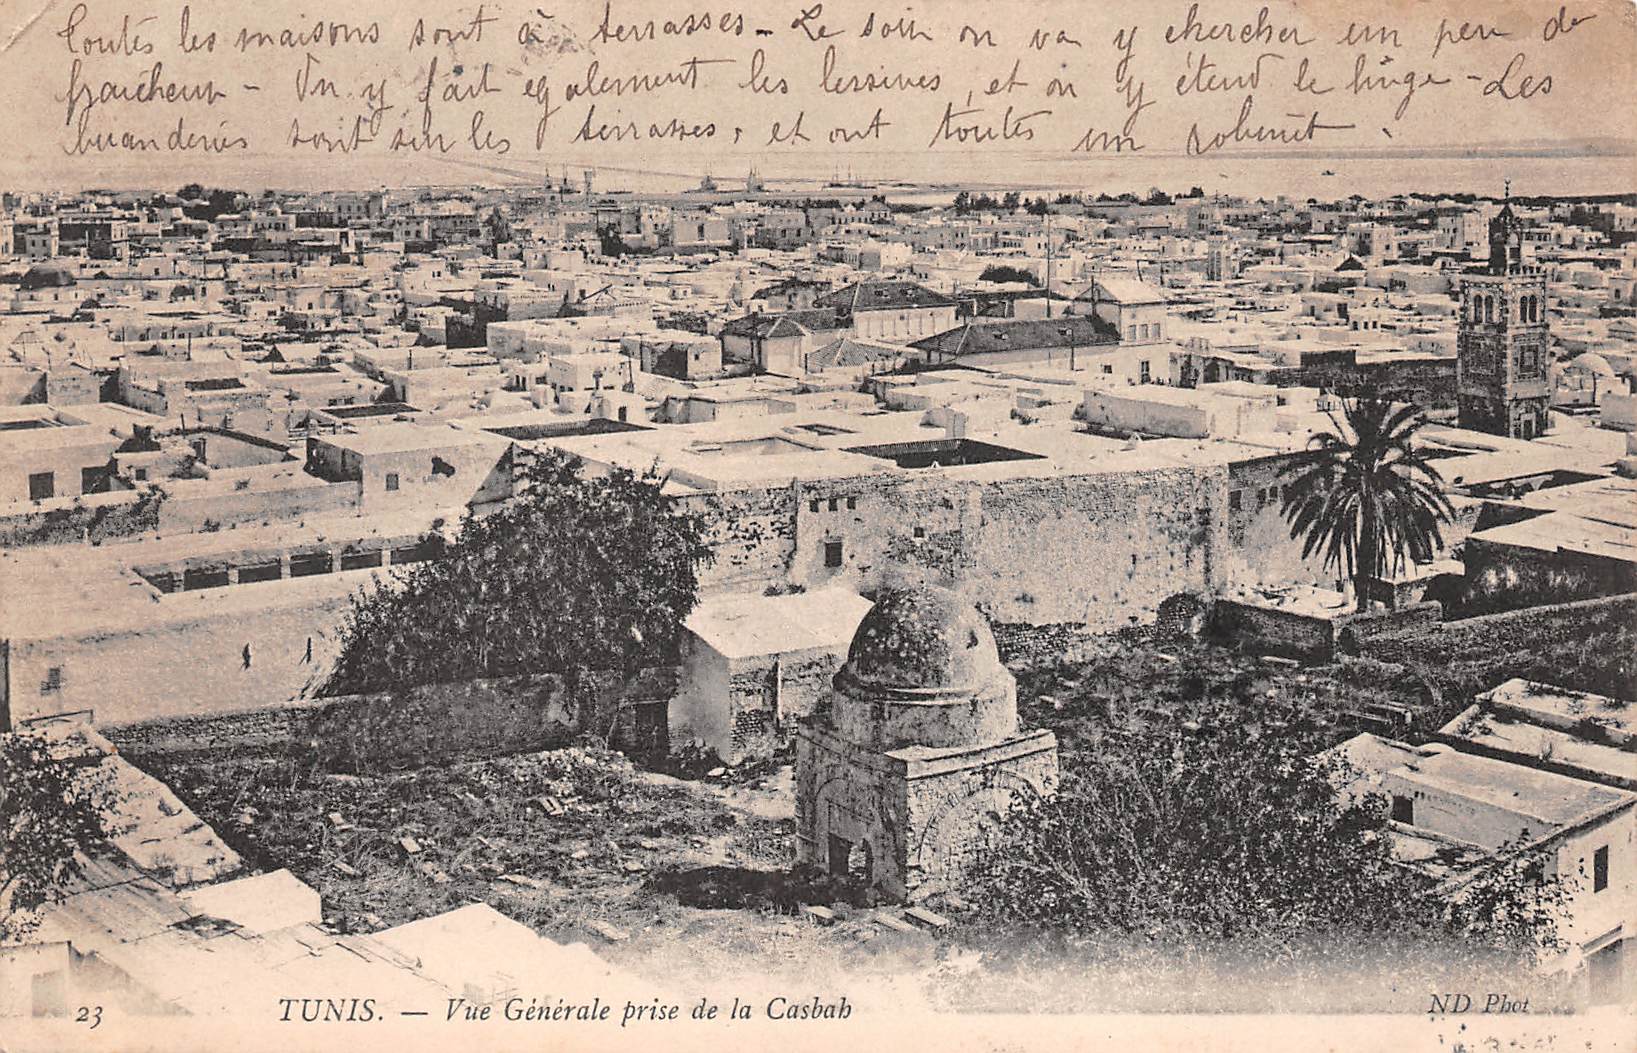 Toutes les maisons sont à terrasses - Le soir on va y chercher un peu de
fraicheur - On y fait également les lessives, et on y étend le linge - Les
buanderies sont sur les terrasses, et ont toutes un robinet.
23 TUNIS. — Vue Générale prise de la Casbah ND Phot